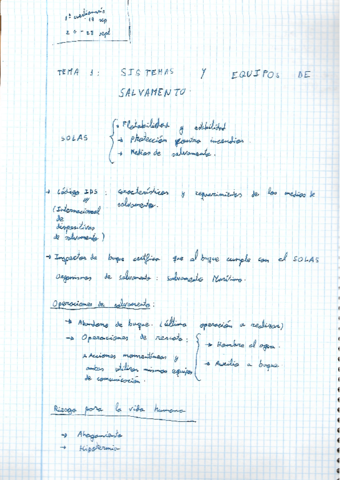 1º cuestionario
18 sep
20-23 sept
TEMA 1: SISTEMAS Y EQUIPOS DE
SALVAMENTO.
SOLAS
→ Flotabilidad y estabilidad
→ Protección contra incendios
→ Medios de salvamento.
→ Código IDS: características y requerimientos de los medios de
salvamento.
(Internacional
de
dispositivos
de salvamento)
→ Inspector de buque certifica que el buque cumple con el SOLAS
Organismos de salvamento: Salvamento Marítimo.
Operaciones de salvamento:
→ Abandono de buque. (última operación a realizar)
→ Operaciones de rescate:
→ Hombre al agua
→ Auxilio a buque
Acciones momentáneas y
ambas utilizan mismos equipos
de comunicación.
Riesgo para la vida humana
→ Ahogamiento
→ Hipotermia